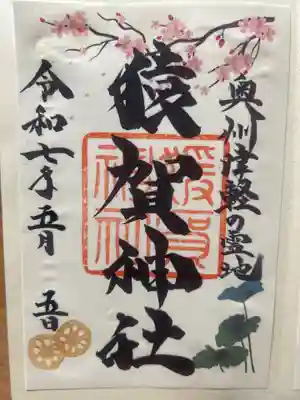 奥州津軽の霊地
猿賀神社
猿賀神社
令和七年五月五日